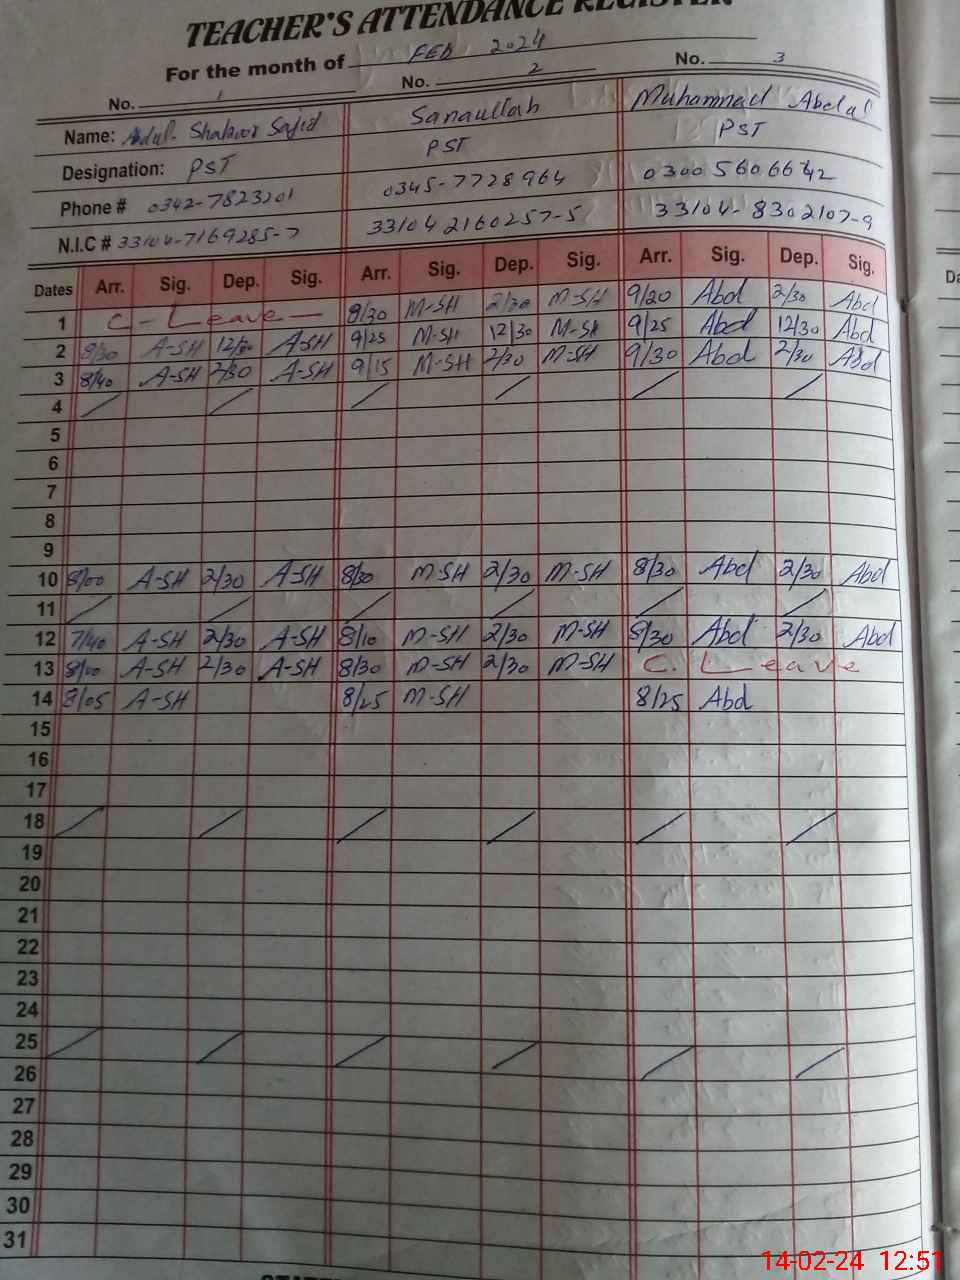 TEACHER'S ATTENDANCE REGISTER
For the month of FEB 2024
No. 1 No. 2 No. 3
Name: Abdul Shakoor Sajid Sanaullah Muhammad Abdul
Designation: PST PST PST
Phone # 0342-7823201 0345-7728964 0300 5606642
N.I.C # 33104-7169285-7 33104 2160257-5 33104-8302107-9
Dates Arr. Sig. Dep. Sig. Arr. Sig. Dep. Sig. Arr. Sig. Dep. Sig.
1 C-Leave- 8/30 M-SH 2/30 M-SH 9/20 Abd 2/30 Abd
2 8/30 A-SH 12/30 A-SH 9/25 M-SH 12/30 M-SH 9/25 Abd 12/30 Abd
3 8/40 A-SH 2/30 A-SH 9/15 M-SH 2/30 M-SH 9/30 Abd 2/30 Abd
4 / / / / / /
5
6
7
8
9
10 8/00 A-SH 2/30 A-SH 8/30 M-SH 2/30 M-SH 8/30 Abd 2/30 Abd
11 / / / / / /
12 7/40 A-SH 2/30 A-SH 8/10 M-SH 2/30 M-SH 8/30 Abd 2/30 Abd
13 8/00 A-SH 2/30 A-SH 8/30 M-SH 2/30 M-SH C. Leave
14 8/05 A-SH 8/25 M-SH 8/25 Abd
15
16
17
18 / / / / / /
19
20
21
22
23
24
25 / / / / / /
26
27
28
29
30
31
14-02-24 12:51